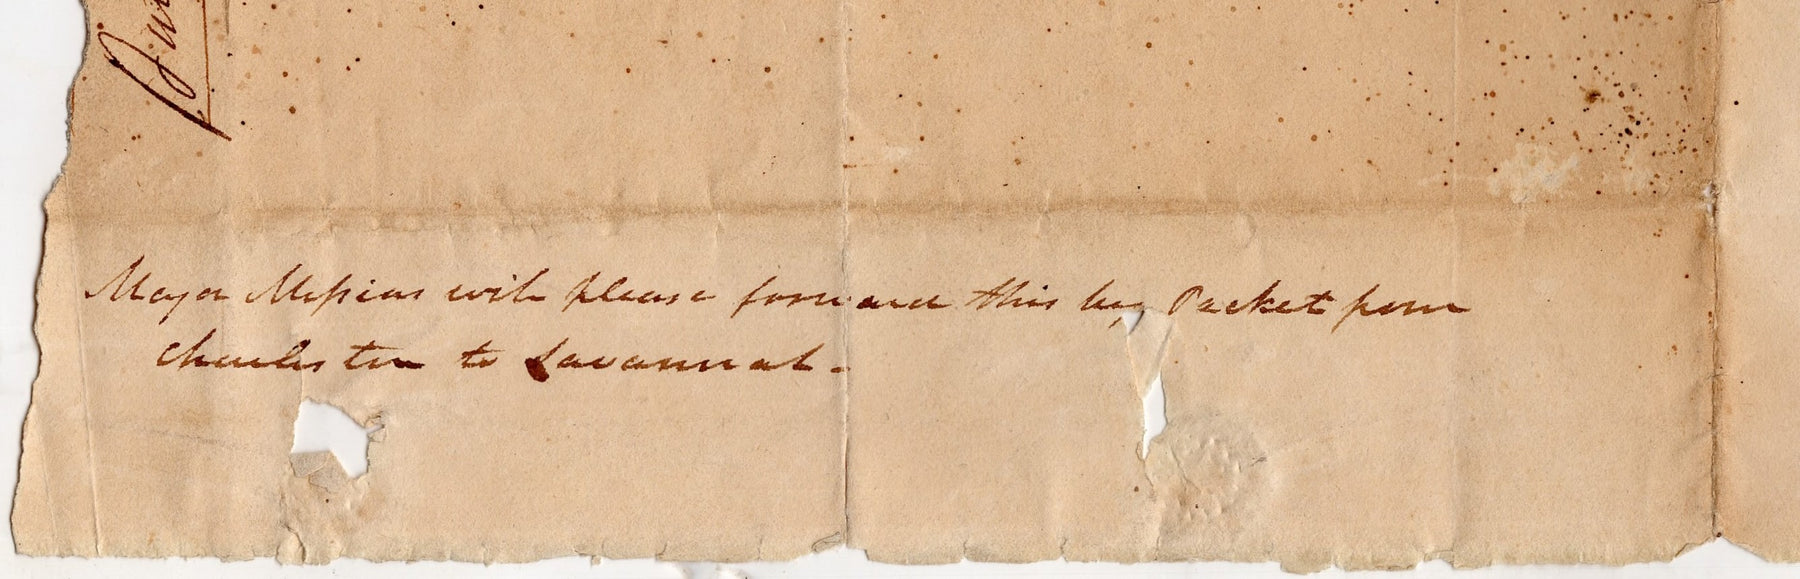 Major Messias will please forward this by Packet from
Charleston to Savannah -